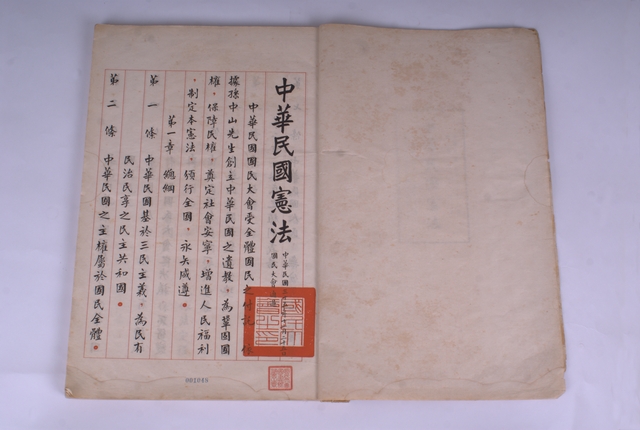 中華民國憲法
中華民國
國民大會
中華民國國民大會受全體國民之付託，依
據孫中山先生創立中華民國之遺教，為鞏固國
權，保障民權，奠定社會安寧，增進人民福利
，制定本憲法，頒行全國，永矢咸遵。
第一章 總綱
第一條 中華民國基於三民主義，為民有
民治民享之民主共和國。
第二條 中華民國之主權屬於國民全體。
國民大會之印
001048